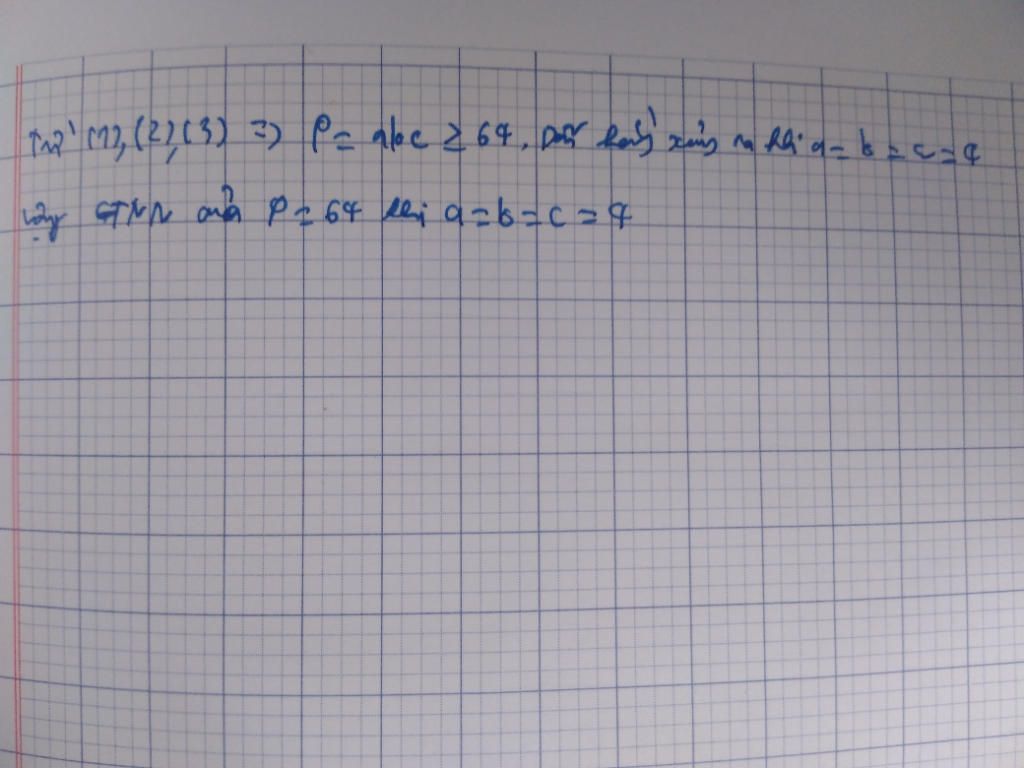 Từ (1), (2), (3) => P = abc ≥ 64. Dấu bằng xảy ra khi a = b = c = 4
Vậy GTNN của P = 64 khi a = b = c = 4